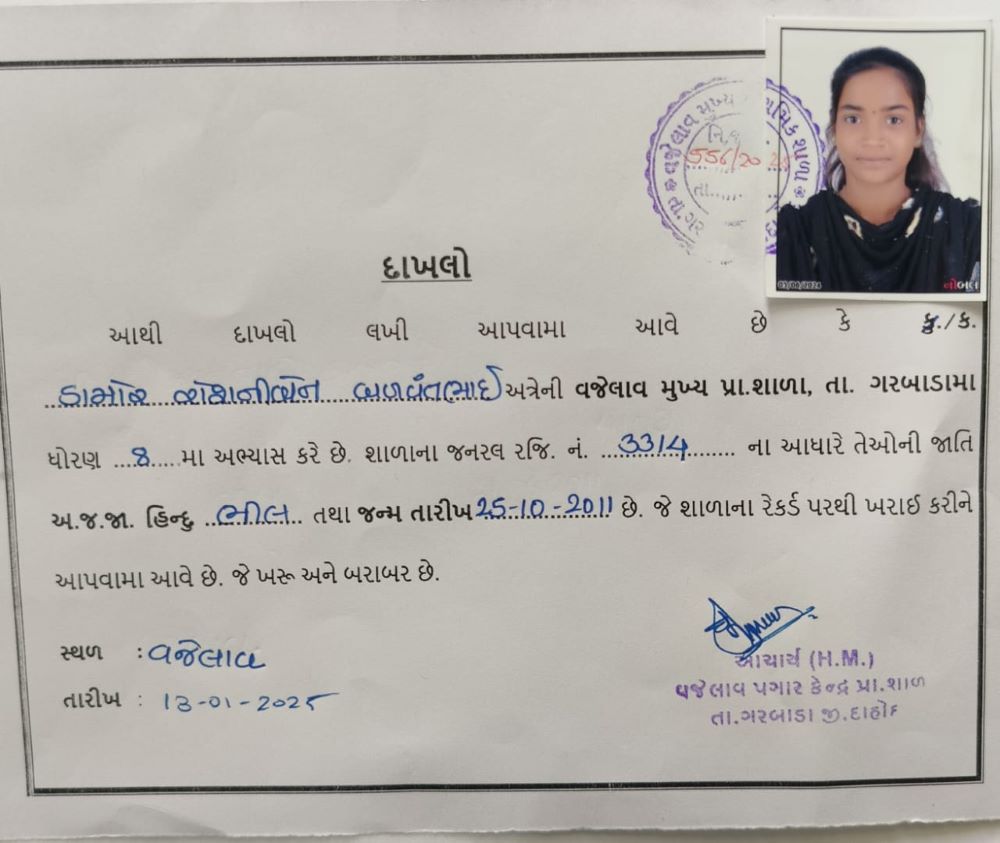 વજેલાવ મુખ્ય
મિક શાળા
તા. ગર
556/20
તા......
03/08/2024
નોબલ
દાખલો
આથી દાખલો લખી આપવામા આવે છે કે કુ./ક.
ડામોર રોશનીબેન બળવંતભાઈ અત્રેની વજેલાવ મુખ્ય પ્રા.શાળા, તા. ગરબાડામા
ધોરણ ...8.... મા અભ્યાસ કરે છે. શાળાના જનરલ રજિ. નં. ...3314....... ના આધારે તેઓની જાતિ
અ.જ.જા. હિન્દુ ..ભીલ.. તથા જન્મ તારીખ 25-10-2011 છે. જે શાળાના રેકર્ડ પરથી ખરાઈ કરીને
આપવામા આવે છે. જે ખરૂ અને બરાબર છે.
સ્થળ : વજેલાવ
તારીખ : 13-01-2025
આચાર્ય (H.M.)
વજેલાવ પગાર કેન્દ્ર પ્રા.શાળ
તા.ગરબાડા જી.દાહોદ